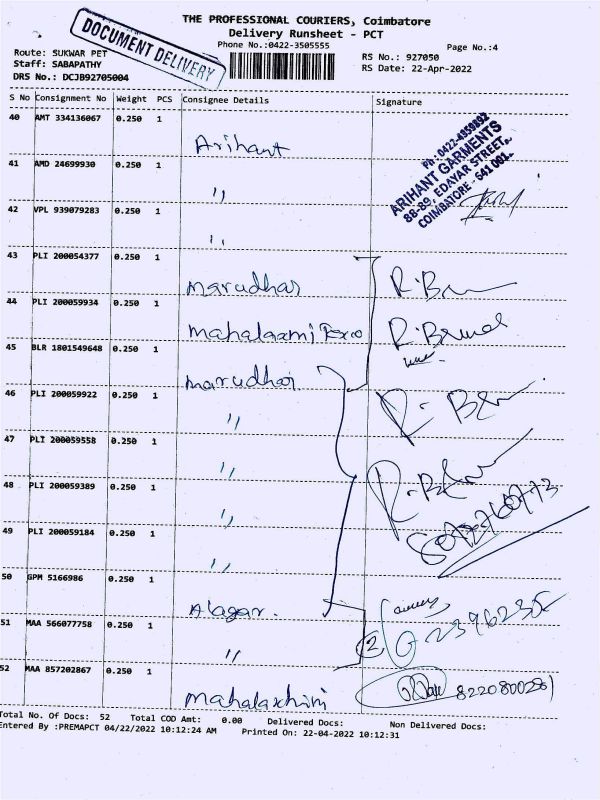 THE PROFESSIONAL COURIERS, Coimbatore
Delivery Runsheet - PCT
DOCUMENT DELIVERY
Phone No.:0422-3505555
Page No.:4
Route: SUKWAR PET
Staff: SABAPATHY
DRS No.: DCJB92705004
RS No.: 927050
RS Date: 22-Apr-2022
S No Consignment No Weight PCS Consignee Details Signature
40 AMT 334136067 0.250 1
Arihant
Ph : 0422-4959892
ARIHANT GARMENTS
88-89, EDAYAR STREET,
COIMBATORE - 641 001.
41 AMD 24699930 0.250 1
,,
42 VPL 939079283 0.250 1
,,
43 PLI 200054377 0.250 1
Marudhar R.
44 PLI 200059934 0.250 1
Mahalaxmi R.
45 BLR 1801549648 0.250 1
Marudhar
46 PLI 200059922 0.250 1
,, R.
47 PLI 200059558 0.250 1
,,
48 PLI 200059389 0.250 1
,, R.
49 PLI 200059184 0.250 1
,,
50 GPM 5166986 0.250 1
Alagar.
51 MAA 566077758 0.250 1
,, 2
52 MAA 857202867 0.250 1
Mahalaxhimi
Total No. Of Docs: 52 Total COD Amt: 0.00 Delivered Docs: Non Delivered Docs:
Entered By :PREMAPCT 04/22/2022 10:12:24 AM Printed On: 22-04-2022 10:12:31